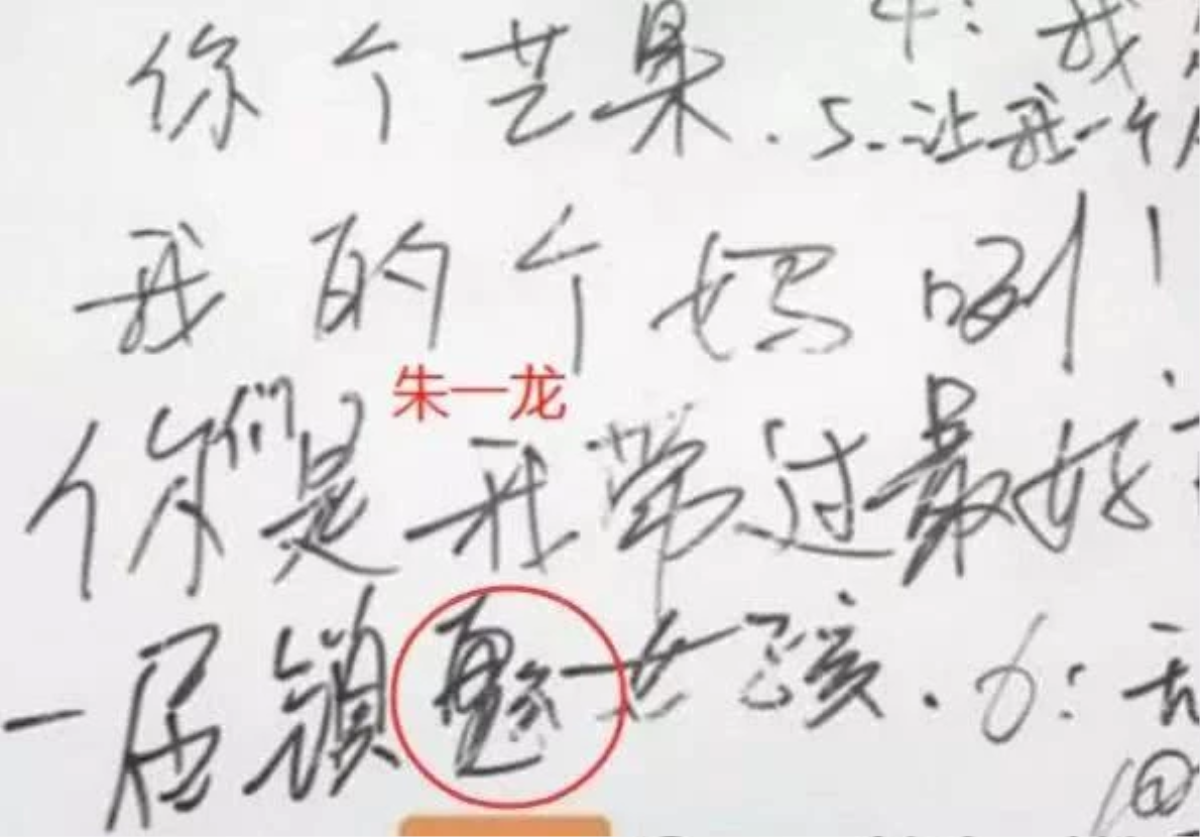 4: 我
你个芒果. 5.让我一个
我的个妈咧!
朱一龙
你们是我带过最好
一届镇魂女孩. 6:
@